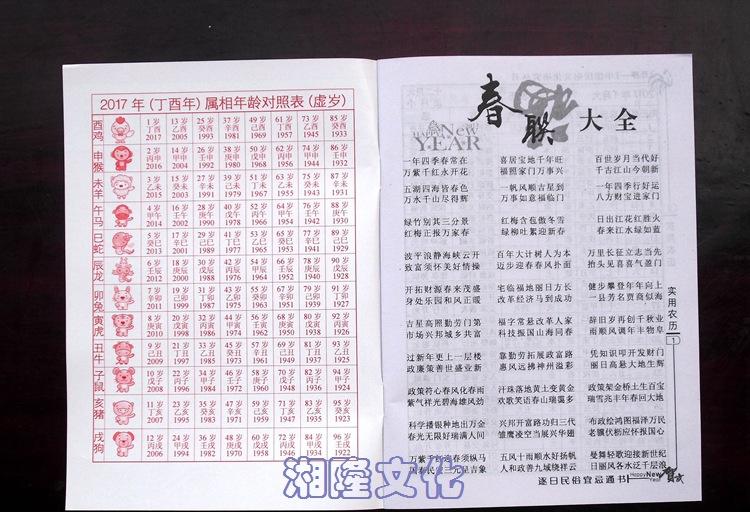 2017 年 (丁酉年) 属相年龄对照表 (虚岁)
酉鸡
1 岁 13 岁 25 岁 37 岁 49 岁 61 岁 73 岁 85 岁
丁酉 乙酉 癸酉 辛酉 己酉 丁酉 乙酉 癸酉
2017 2005 1993 1981 1969 1957 1945 1933
申猴
2 岁 14 岁 26 岁 38 岁 50 岁 62 岁 74 岁 86 岁
丙申 甲申 壬申 庚申 戊申 丙申 甲申 壬申
2016 2004 1992 1980 1968 1956 1944 1932
未羊
3 岁 15 岁 27 岁 39 岁 51 岁 63 岁 75 岁 87 岁
乙未 癸未 辛未 己未 丁未 乙未 癸未 辛未
2015 2003 1991 1979 1967 1955 1943 1931
午马
4 岁 16 岁 28 岁 40 岁 52 岁 64 岁 76 岁 88 岁
甲午 壬午 庚午 戊午 丙午 甲午 壬午 庚午
2014 2002 1990 1978 1966 1954 1942 1930
巳蛇
5 岁 17 岁 29 岁 41 岁 53 岁 65 岁 77 岁 89 岁
癸巳 辛巳 己巳 丁巳 乙巳 癸巳 辛巳 己巳
2013 2001 1989 1977 1965 1953 1941 1929
辰龙
6 岁 18 岁 30 岁 42 岁 54 岁 66 岁 78 岁 90 岁
壬辰 庚辰 戊辰 丙辰 甲辰 壬辰 庚辰 戊辰
2012 2000 1988 1976 1964 1952 1940 1928
卯兔
7 岁 19 岁 31 岁 43 岁 55 岁 67 岁 79 岁 91 岁
辛卯 己卯 丁卯 乙卯 癸卯 辛卯 己卯 丁卯
2011 1999 1987 1975 1963 1951 1939 1927
寅虎
8 岁 20 岁 32 岁 44 岁 56 岁 68 岁 80 岁 92 岁
庚寅 戊寅 丙寅 甲寅 壬寅 庚寅 戊寅 丙寅
2010 1998 1986 1974 1962 1950 1938 1926
丑牛
9 岁 21 岁 33 岁 45 岁 57 岁 69 岁 81 岁 93 岁
己丑 丁丑 乙丑 癸丑 辛丑 己丑 丁丑 乙丑
2009 1997 1985 1973 1961 1949 1937 1925
子鼠
10 岁 22 岁 34 岁 46 岁 58 岁 70 岁 82 岁 94 岁
戊子 丙子 甲子 壬子 庚子 戊子 丙子 甲子
2008 1996 1984 1972 1960 1948 1936 1924
亥猪
11 岁 23 岁 35 岁 47 岁 59 岁 71 岁 83 岁 95 岁
丁亥 乙亥 癸亥 辛亥 己亥 丁亥 乙亥 癸亥
2007 1995 1983 1971 1959 1947 1935 1923
戌狗
12 岁 24 岁 36 岁 48 岁 60 岁 72 岁 84 岁 96 岁
丙戌 甲戌 壬戌 庚戌 戊戌 丙戌 甲戌 壬戌
2006 1994 1982 1970 1958 1946 1934 1922
春联大全
HAPPY NeW
YEAR
一年四季春常在 喜居宝地千年旺 百世岁月当代好
万紫千红永开花 福照家门万事兴 千古江山今朝新
五湖四海皆春色 一帆风顺吉星到 一年四季行好运
万水千山尽得辉 万事如意福临门 八方财宝进家门
绿竹别其三分景 红梅含苞傲冬雪 日出江花红胜火
红梅正报万家春 绿柳吐絮迎新春 春来江水绿如蓝
波平浪静海峡云开 百年大计树人为本 万里长征立志当先
致富须怀美好情操 迈步迎春春风扑面 抬头见喜喜气盈门
开拓财源春来茂盛 宅临福地丽日方长 健步攀登年年向上
身处乐园和风正暖 改革经济马到成功 一县芳名贾商似海
吉星高照勤劳门第 福字常悬改革人家 辞旧岁再创千秋业
市场兴邦城乡共富 科技报国山海同春 雨顺风调年丰物阜
过新年更上一层楼 靠勤劳拓展政富路 凭知识叩开发财门
政廉策善世盛业新 惠风远拂神州溢彩 丽日高悬大地生辉
政策符心春风化春雨 汗珠落地黄土变黄金 政策架金桥土生百宝
紫气祥光碧海雄风劲 欢歌笑语春山瑞霭多 瑞雪兆丰年春回大地
科学播银种地出万金 兴邦开富路功归三代 布政绘鸿图福泽万民
春光无限好瑞满人间 雏鹰凌空当展兴华翅 老骥伏枥应怀报国心
五风十雨顺水好扬帆 曼舞轻歌迎接新世纪
人和政善九域绕祥云 日丽风各水泛千层浪
实用农历
1
逐日民俗宜忌通书
Happy New
Year
贺
湘隆文化